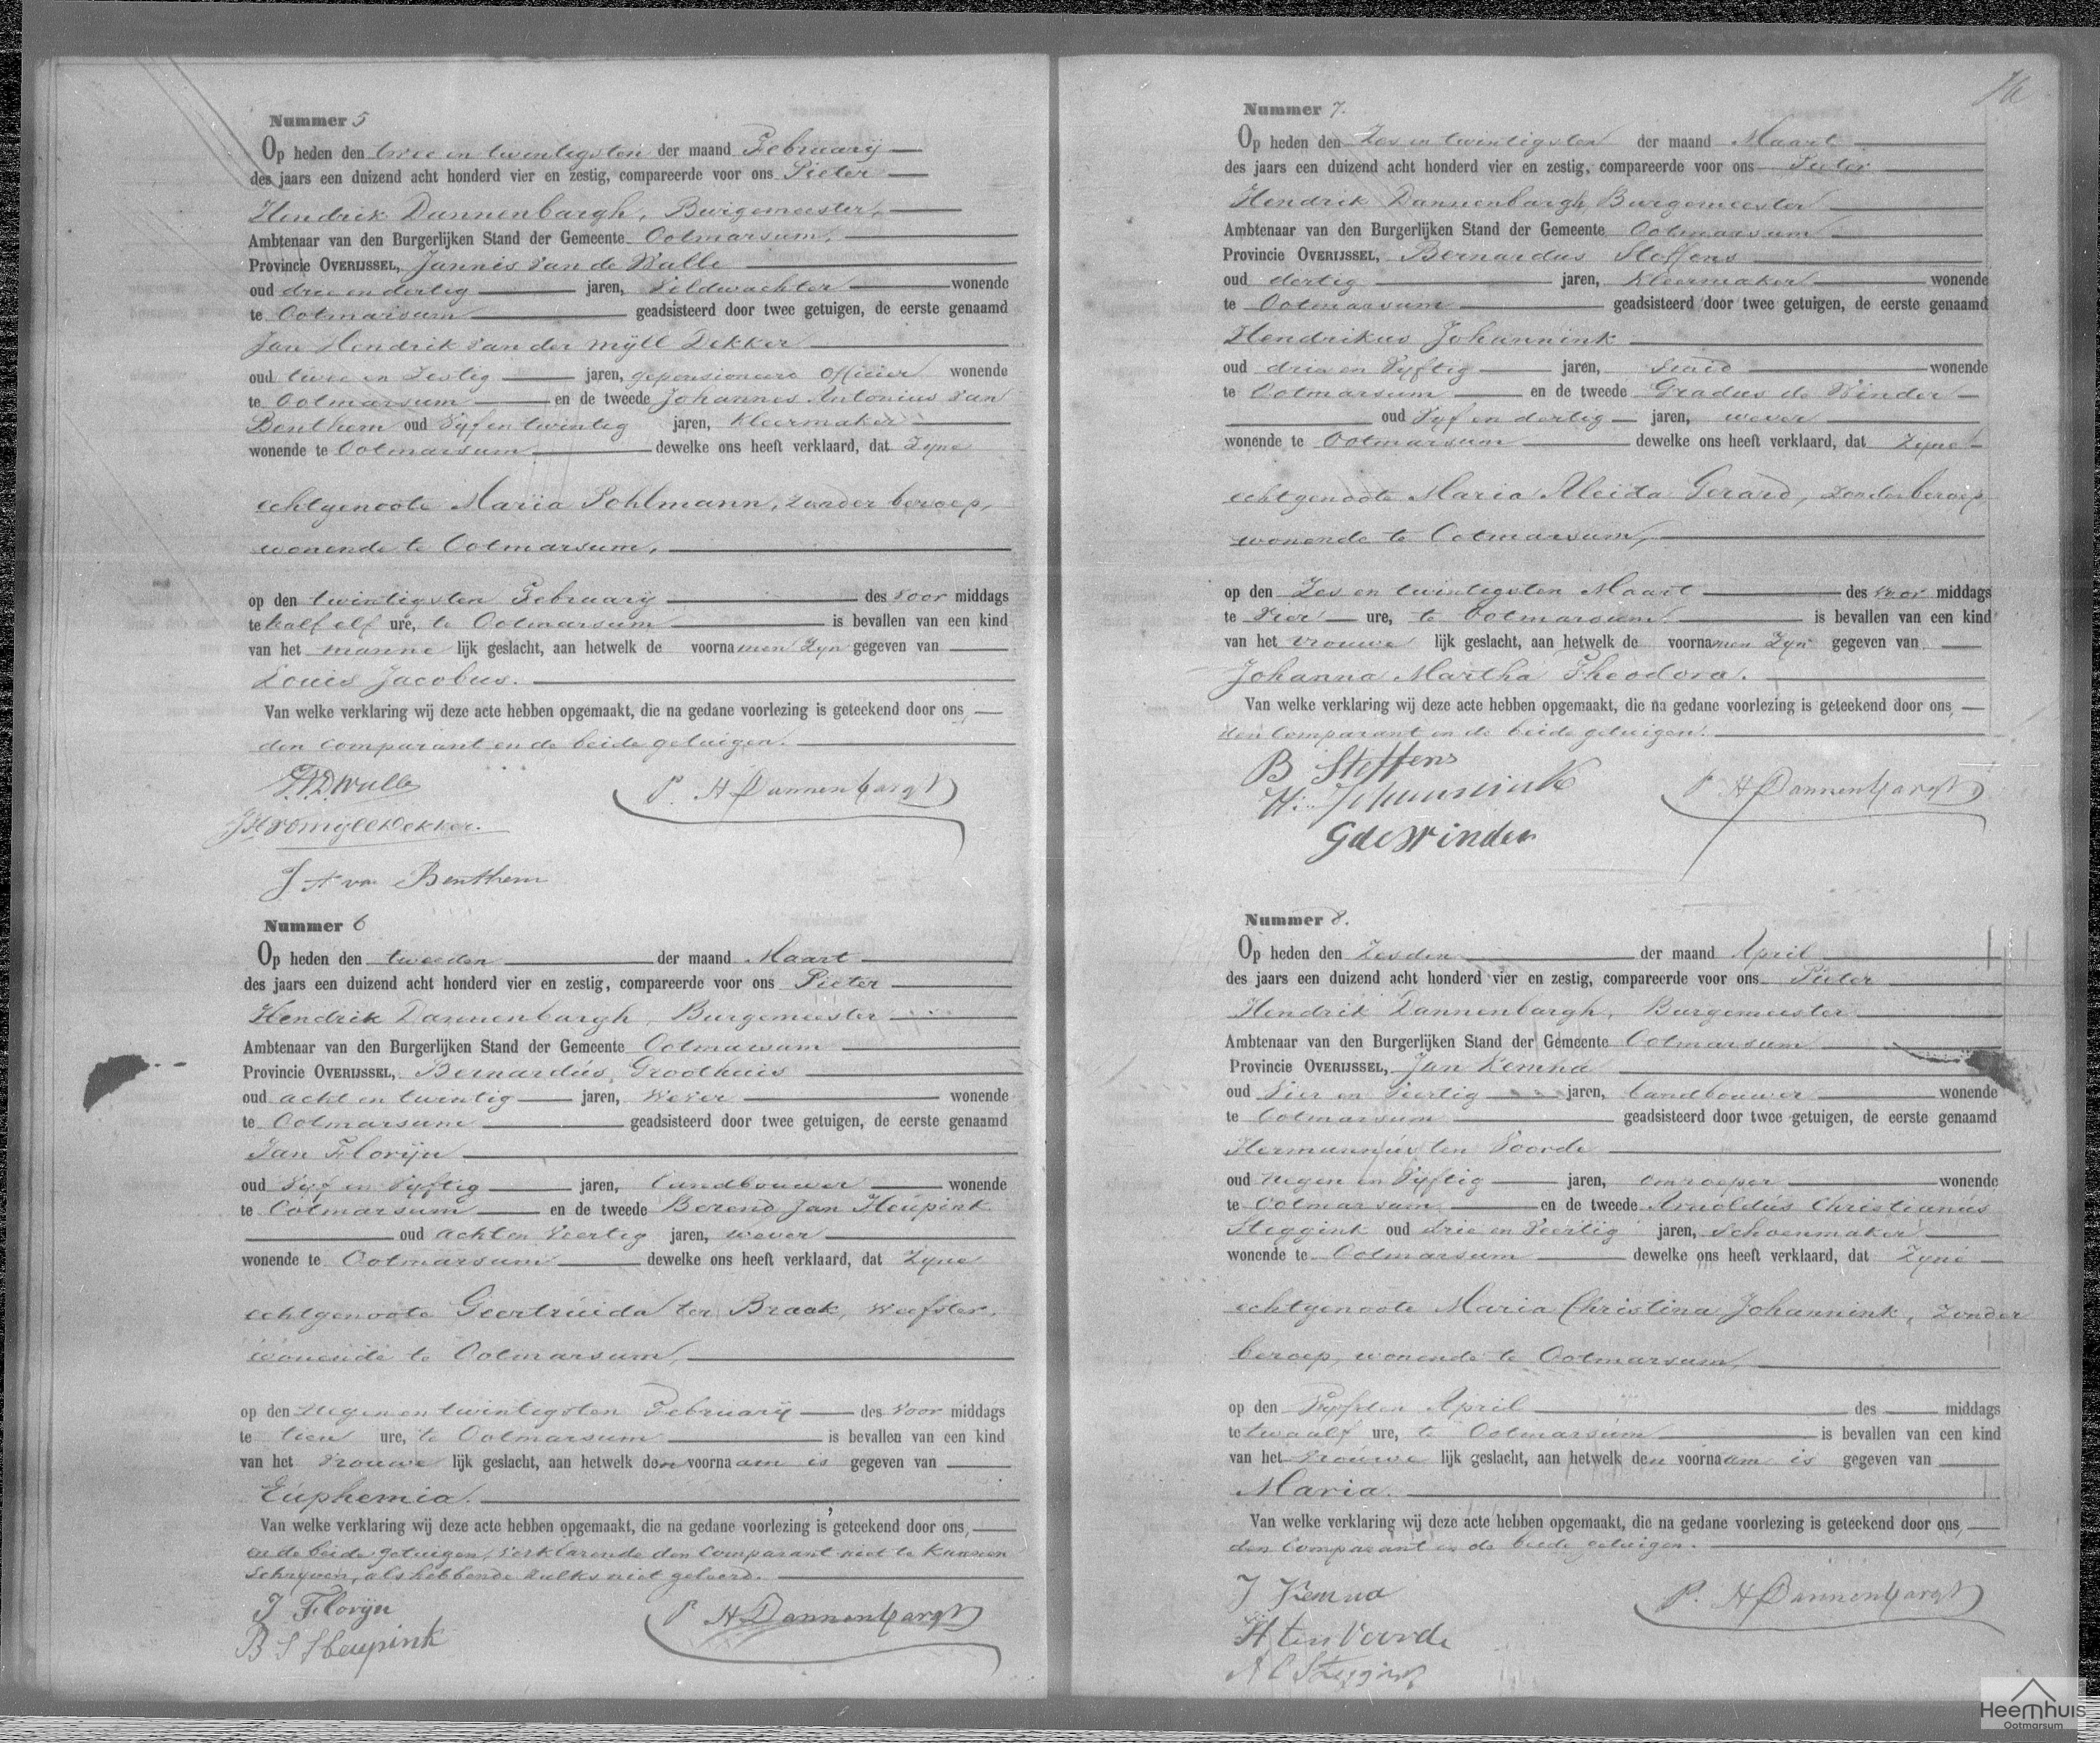 Nummer 5
Op heden den twee en twintigsten der maand Februarij
des jaars een duizend acht honderd vier en zestig, compareerde voor ons Pieter
Hendrik Dannenbargh, Burgemeester,
Ambtenaar van den Burgerlijken Stand der Gemeente Ootmarsum,
Provincie OVERIJSSEL, Jannis van de Walle
oud drie en dertig jaren, Veldwachter wonende
te Ootmarsum geadsisteerd door twee getuigen, de eerste genaamd
Jan Hendrik van der Mijll Dekker
oud twee en Zestig jaren, gepensioneerd Officier wonende
te Ootmarsum en de tweede Johannes Antonius van
Benthem oud Vyf en twintig jaren, Kleermaker
wonende te Ootmarsum dewelke ons heeft verklaard, dat Zyne
echtgenoote Maria Pohlmann, zonder beroep,
wonende te Ootmarsum,
op den twintigsten Februarij des voor middags
te half elf ure, te Ootmarsum is bevallen van een kind
van het manne lijk geslacht, aan hetwelk de voornamen Zyn gegeven van
Louis Jacobus.
Van welke verklaring wij deze acte hebben opgemaakt, die na gedane voorlezing is geteekend door ons,
den comparant en de beide getuigen.
P. H Dannenbargh
JH vd Myll Dekker.
J A van Benthem
Nummer 6
Op heden den tweeden der maand Maart
des jaars een duizend acht honderd vier en zestig, compareerde voor ons Pieter
Hendrik Dannenbargh, Burgemeester
Ambtenaar van den Burgerlijken Stand der Gemeente Ootmarsum
Provincie OVERIJSSEL, Bernardus Groothuis
oud acht en twintig jaren, Wever wonende
te Ootmarsum geadsisteerd door twee getuigen, de eerste genaamd
Jan Florijn
oud Vyf en Vyftig jaren, Landbouwer wonende
te Ootmarsum en de tweede Berend Jan Heupink
oud acht en Veertig jaren, wever
wonende te Ootmarsum dewelke ons heeft verklaard, dat Zyne
echtgenoote Geertruida ter Braak, Weefster,
wonende te Ootmarsum,
op den Negen en twintigsten Februarij des Voor middags
te tien ure, te Ootmarsum is bevallen van een kind
van het Vrouwe lijk geslacht, aan hetwelk den voornaam is gegeven van
Euphemia.
Van welke verklaring wij deze acte hebben opgemaakt, die na gedane voorlezing is geteekend door ons,
en de beide getuigen, verklarende den Comparant niet te kunnen
Schryven, als hebbende zulks niet geleerd.
J Florijn
P H Dannenbargh
B J Heupink
Nummer 7.
Op heden den Zes en twintigsten der maand Maart
des jaars een duizend acht honderd vier en zestig, compareerde voor ons Pieter
Hendrik Dannenbargh, Burgemeester
Ambtenaar van den Burgerlijken Stand der Gemeente Ootmarsum
Provincie OVERIJSSEL, Bernardus Steffens
oud dertig jaren, Kleermaker wonende
te Ootmarsum geadsisteerd door twee getuigen, de eerste genaamd
Hendrikus Johannink
oud drie en Vyftig jaren, Smid wonende
te Ootmarsum en de tweede Gradus de Winder
oud Vyf en dertig jaren, wever
wonende te Ootmarsum dewelke ons heeft verklaard, dat Zyne
echtgenoote Maria Aleida Gerard, zonder beroep,
wonende te Ootmarsum,
op den Zes en twintigsten Maart des voor middags
te Vier ure, te Ootmarsum is bevallen van een kind
van het vrouwe lijk geslacht, aan hetwelk de voornamen Zyn gegeven van
Johanna Martha Theodora.
Van welke verklaring wij deze acte hebben opgemaakt, die na gedane voorlezing is geteekend door ons,
den Comparant en de beide getuigen.
B Steffens
H. Johannink
P H Dannenbargh
G de Winder
Nummer 8.
Op heden den Zesden der maand April
des jaars een duizend acht honderd vier en zestig, compareerde voor ons Pieter
Hendrik Dannenbargh, Burgemeester
Ambtenaar van den Burgerlijken Stand der Gemeente Ootmarsum
Provincie OVERIJSSEL, Jan Kemna
oud Vier en Veertig jaren, Landbouwer wonende
te Ootmarsum geadsisteerd door twee getuigen, de eerste genaamd
Hermannus ten Voorde
oud Negen en Vyftig jaren, omroeper wonende
te Ootmarsum en de tweede Arnoldus Christianus
Steggink oud drie en Veertig jaren, Schoenmaker
wonende te Ootmarsum dewelke ons heeft verklaard, dat Zyne
echtgenoote Maria Christina Johannink, Zonder
beroep, wonende te Ootmarsum,
op den Vyfden April des middags
te twaalf ure, te Ootmarsum is bevallen van een kind
van het Vrouwe lijk geslacht, aan hetwelk den voornaam is gegeven van
Maria.
Van welke verklaring wij deze acte hebben opgemaakt, die na gedane voorlezing is geteekend door ons,
den Comparant en de beide getuigen.
J Kemna
P. H Dannenbargh
H ten Voorde
A C Steggink
Heemhuis
Ootmarsum